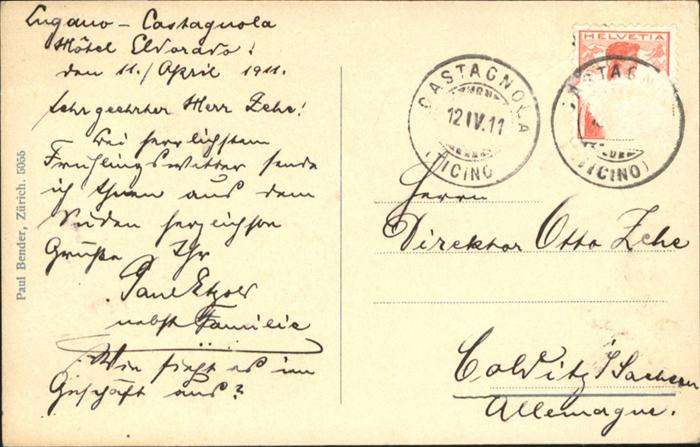 Lugano – Castagnola
Hôtel Eldorado!
den 11./April 1911.
Sehr geehrter Herr Zehe!
Bei herrlichstem
Frühlingswetter sende
ich Ihnen aus dem
Süden herzlichste
Grüße Ihr
Paul
nebst Familie
Wie sieht es im
Geschäft aus?
Paul Bender, Zürich. 5055
HELVETIA
CASTAGNOLA
12 IV. 11
(TICINO)
CASTAG
(TICINO)
Herrn
Direktor Otto Zehe
Colditz i/Sachsen
Allemagne.